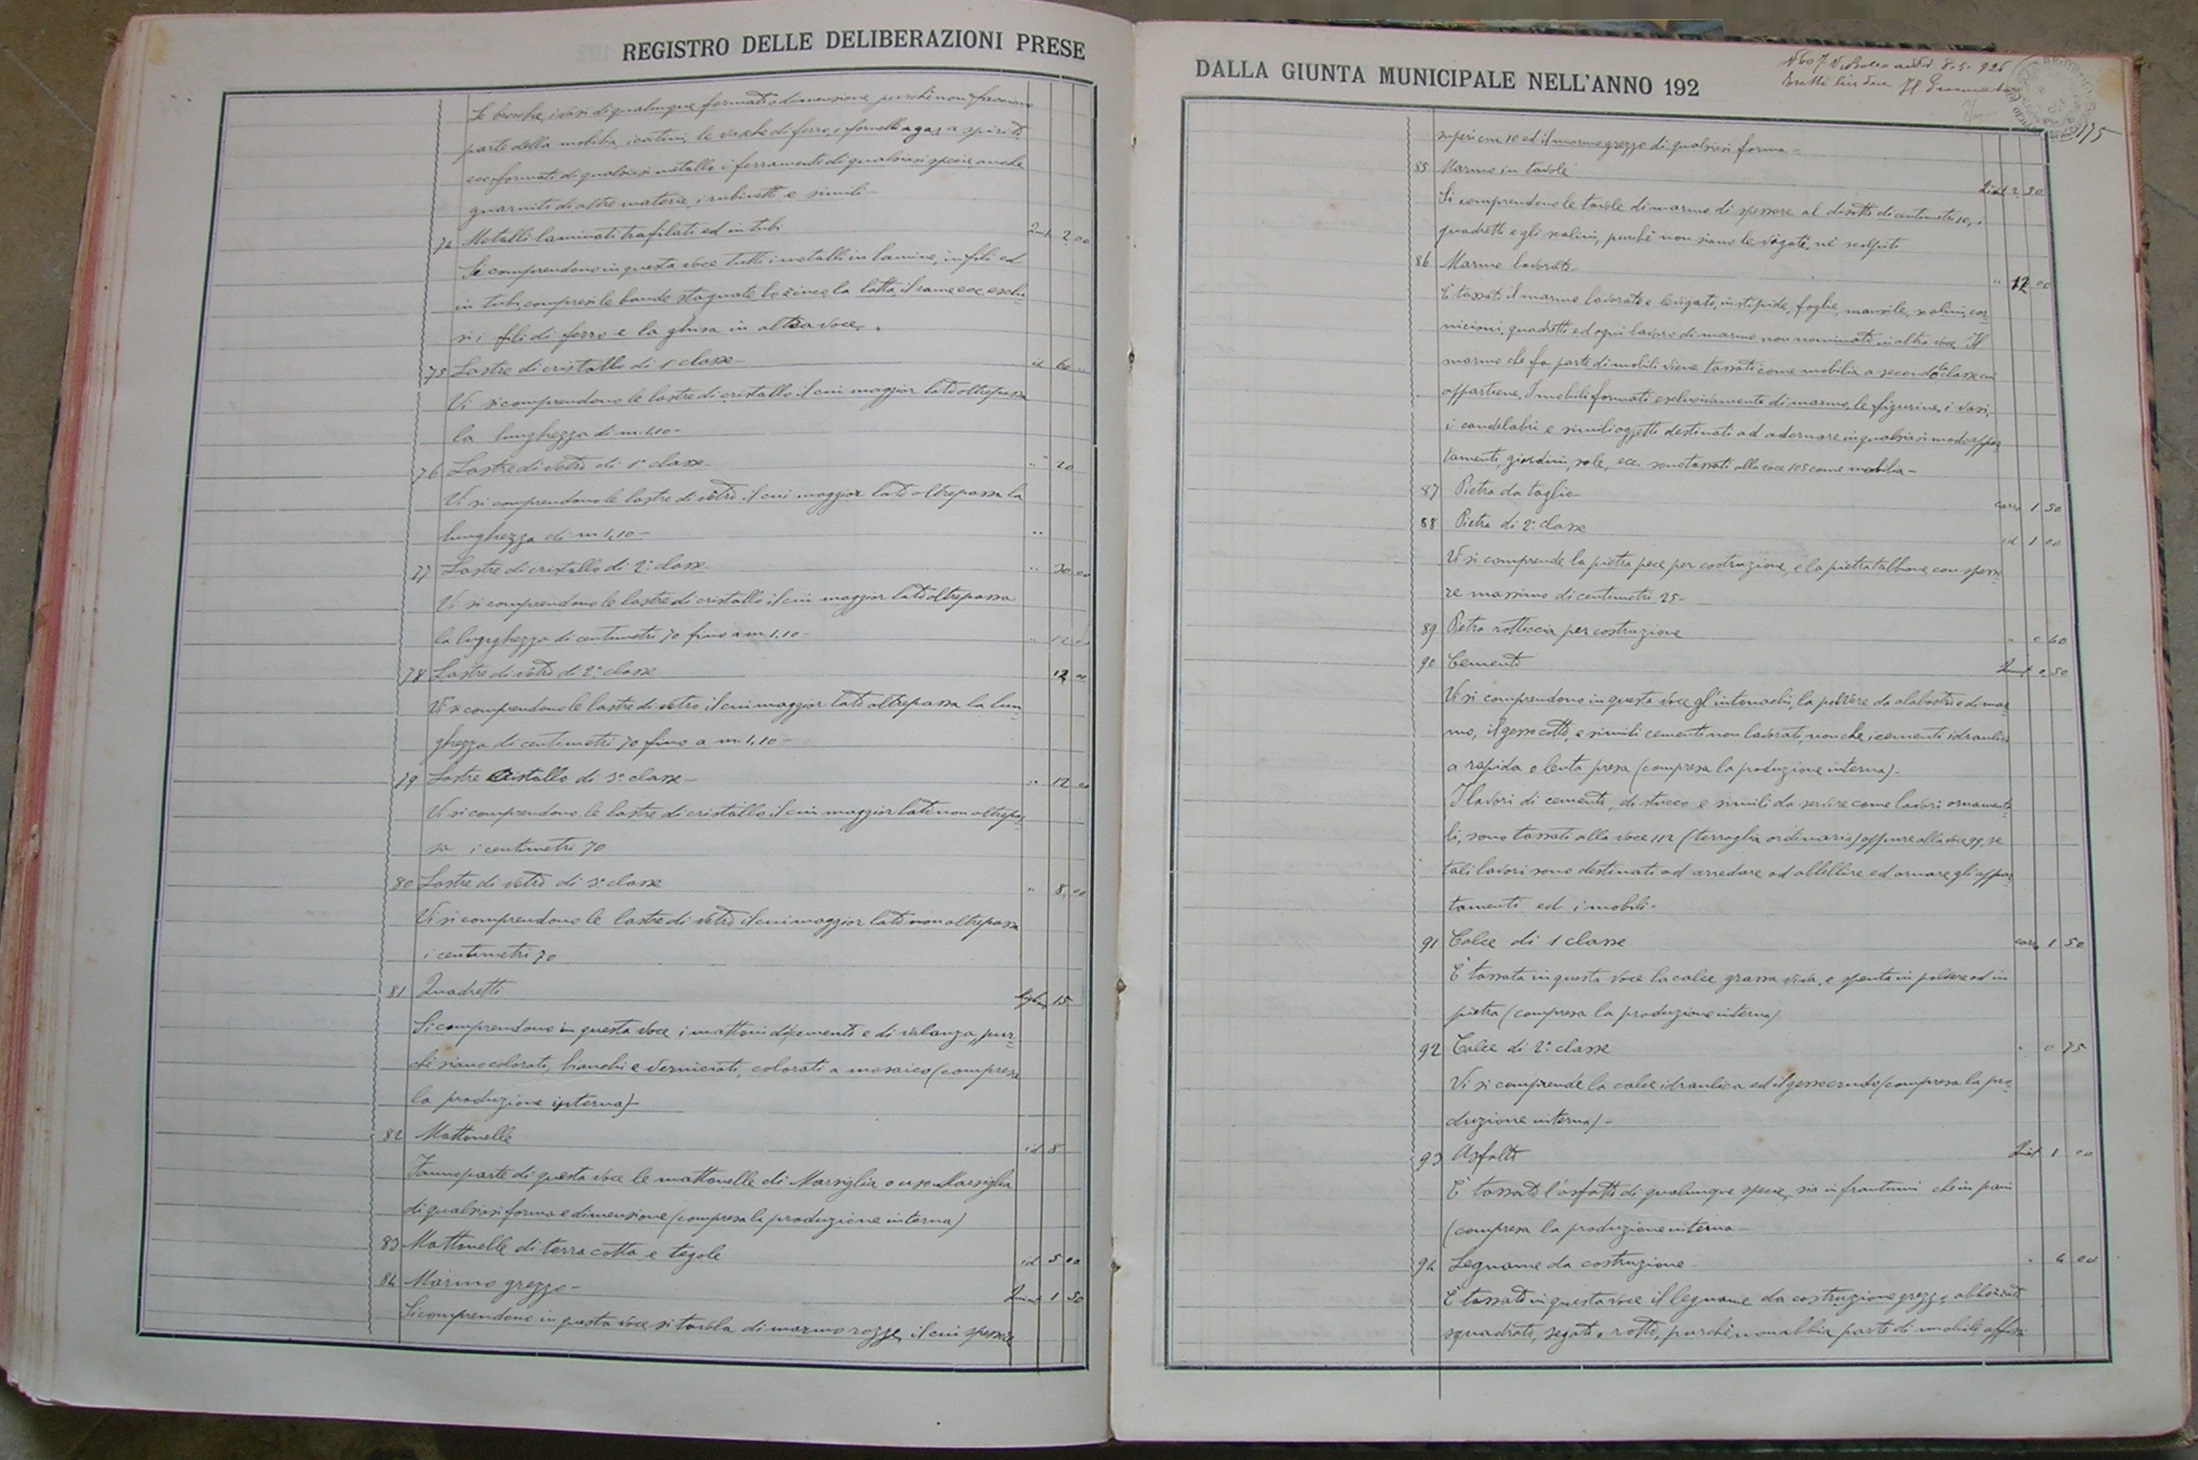 REGISTRO DELLE DELIBERAZIONI PRESE
Le brocche, i vasi di qualunque formato e dimensione purchè non facciano
parte della mobilia, i catini, le vasche di ferro, i fornelli a gaz a spirito
ecc. formati di qualsiasi metallo i ferramenti di qualsiasi specie anche
guarniti di altre materie, i rubinetti e simili-
74 Metalli laminati trafilati ed in tubi 2 00
Si comprendono in questa voce tutti i metalli in lamine, in fili ed
in tubi, comprese le bande stagnate lo zinco, la latta, il rame ecc. esclu
si i fili di ferro e la ghisa in altra voce.
75 Lastre di cristallo di 1 classe id 60
Vi si comprendono le lastre di cristallo il cui maggior lato oltrepassa
la lunghezza di m. 1,10-
76 Lastre di vetro di 1ª classe- " 20
Vi si comprendono le lastre di vetro il cui maggior lato oltrepassa la
lunghezza di m 1,10-
77 Lastre di cristallo di 2ª classe " 30 00
Vi si comprendono le lastre di cristallo il cui maggior lato oltrepassa
la lunghezza di centimetri 70 fino a m. 1,10- " 12 00
78 Lastre di vetro di 2ª classe 12 00
Vi si comprendono le lastre di vetro il cui maggior lato oltrepassa la lun
ghezza di centimetri 70 fino a m. 1,10-
79 Lastre Cristallo di 3ª classe- " 12 00
Vi si comprendono le lastre di cristallo il cui maggior lato non oltrepas
sa i centimetri 70
80 Lastre di vetro di 3ª classe " 8,00
Vi si comprendono le lastre di vetro il cui maggior lato non oltrepassa
i centimetri 70
81 Quadretti 15
Si comprendono in questa voce i mattoni di cemento e di valanza, pur
chè siano colorati, bianchi e verniciati, colorati a mosaico (compresa
la produzione interna)-
82 Mattonelle id 8
Fanno parte di questa voce le mattonelle di Marsiglia o uso Marsiglia
di qualsiasi forma e dimensione (compresa la produzione interna)
83 Mattonelle di terra cotta e tegole id 5 00
84 Marmo grezzo- Quint 1 50
Si comprendono in questa voce si tavola di marmo rozze, il cui spessore
DALLA GIUNTA MUNICIPALE NELL'ANNO 192
8.5.926
175
superi cm. 10 ed il marmo grezzo di qualsiasi forma-
85 Marmo in tavole 2 50
Si comprendono le tavole di marmo di spessore al disotto di centimetri 10, i
quadretti e gli scalini, purchè non siano levigati, nè scolpiti
86 Marmo lavorato- " 12 00
È tassato il marmo lavorato e levigato, in stipide, foglie, mensile, scalini, cor
nicioni, quadretti ed ogni lavoro di marmo non nominato in altra voce. Il
marmo che fa parte di mobili viene tassato come mobilia a secondo la classe cui
appartiene. I mobili formati esclusivamente di marmo, le figurine, i vasi,
i candelabri e simili oggetti destinati ad adornare in qualsiasi modo appar
tamenti, giardini, sale, ecc. sono tassati alla voce 105 come mobilia-
87 Pietra da taglio carro 1 50
88 Pietra di 2ª classe id 1 00
Vi si comprende la pietra pece per costruzione, e la pietra talbone con spesso
re massimo di centimetri 25-
89 Pietra rotticcia per costruzione " 0 60
90 Cemento Quint 0 50
Vi si comprendono in questa voce gl'intonachi, la polvere da alabastro e di mar
mo, il gesso cotto, e simili cementi non lavorati, nonchè i cementi idraulici
a rapida o lenta presa (compresa la produzione interna)-
I lavori di cemento, di stucco e simili da servire come lavori ornamenta
li, sono tassati alla voce 112 (terraglia ordinaria) oppure alla voce 99, se
tali lavori sono destinati ad arredare od abbellire ed ornare gli appar
tamenti ed i mobili-
91 Calce di 1 classe carro 1 50
È tassata in questa voce la calce grassa viva, e spenta in polvere od in
pietra (compresa la produzione interna)
92 Calce di 2ª classe " 0 75
Vi si comprende la calce idraulica ed il gesso crudo (compresa la pro
duzione interna)-
93 Asfalto Quint 1 00
È tassato l'asfalto di qualunque specie, sia in frantumi che in pani
(compresa la produzione interna-
94 Legname da costruzione " 4 00
È tassato in questa voce il legname da costruzione grezzo, abbozzato
squadrato, segato o rotto, purchè non abbia parte di mobili